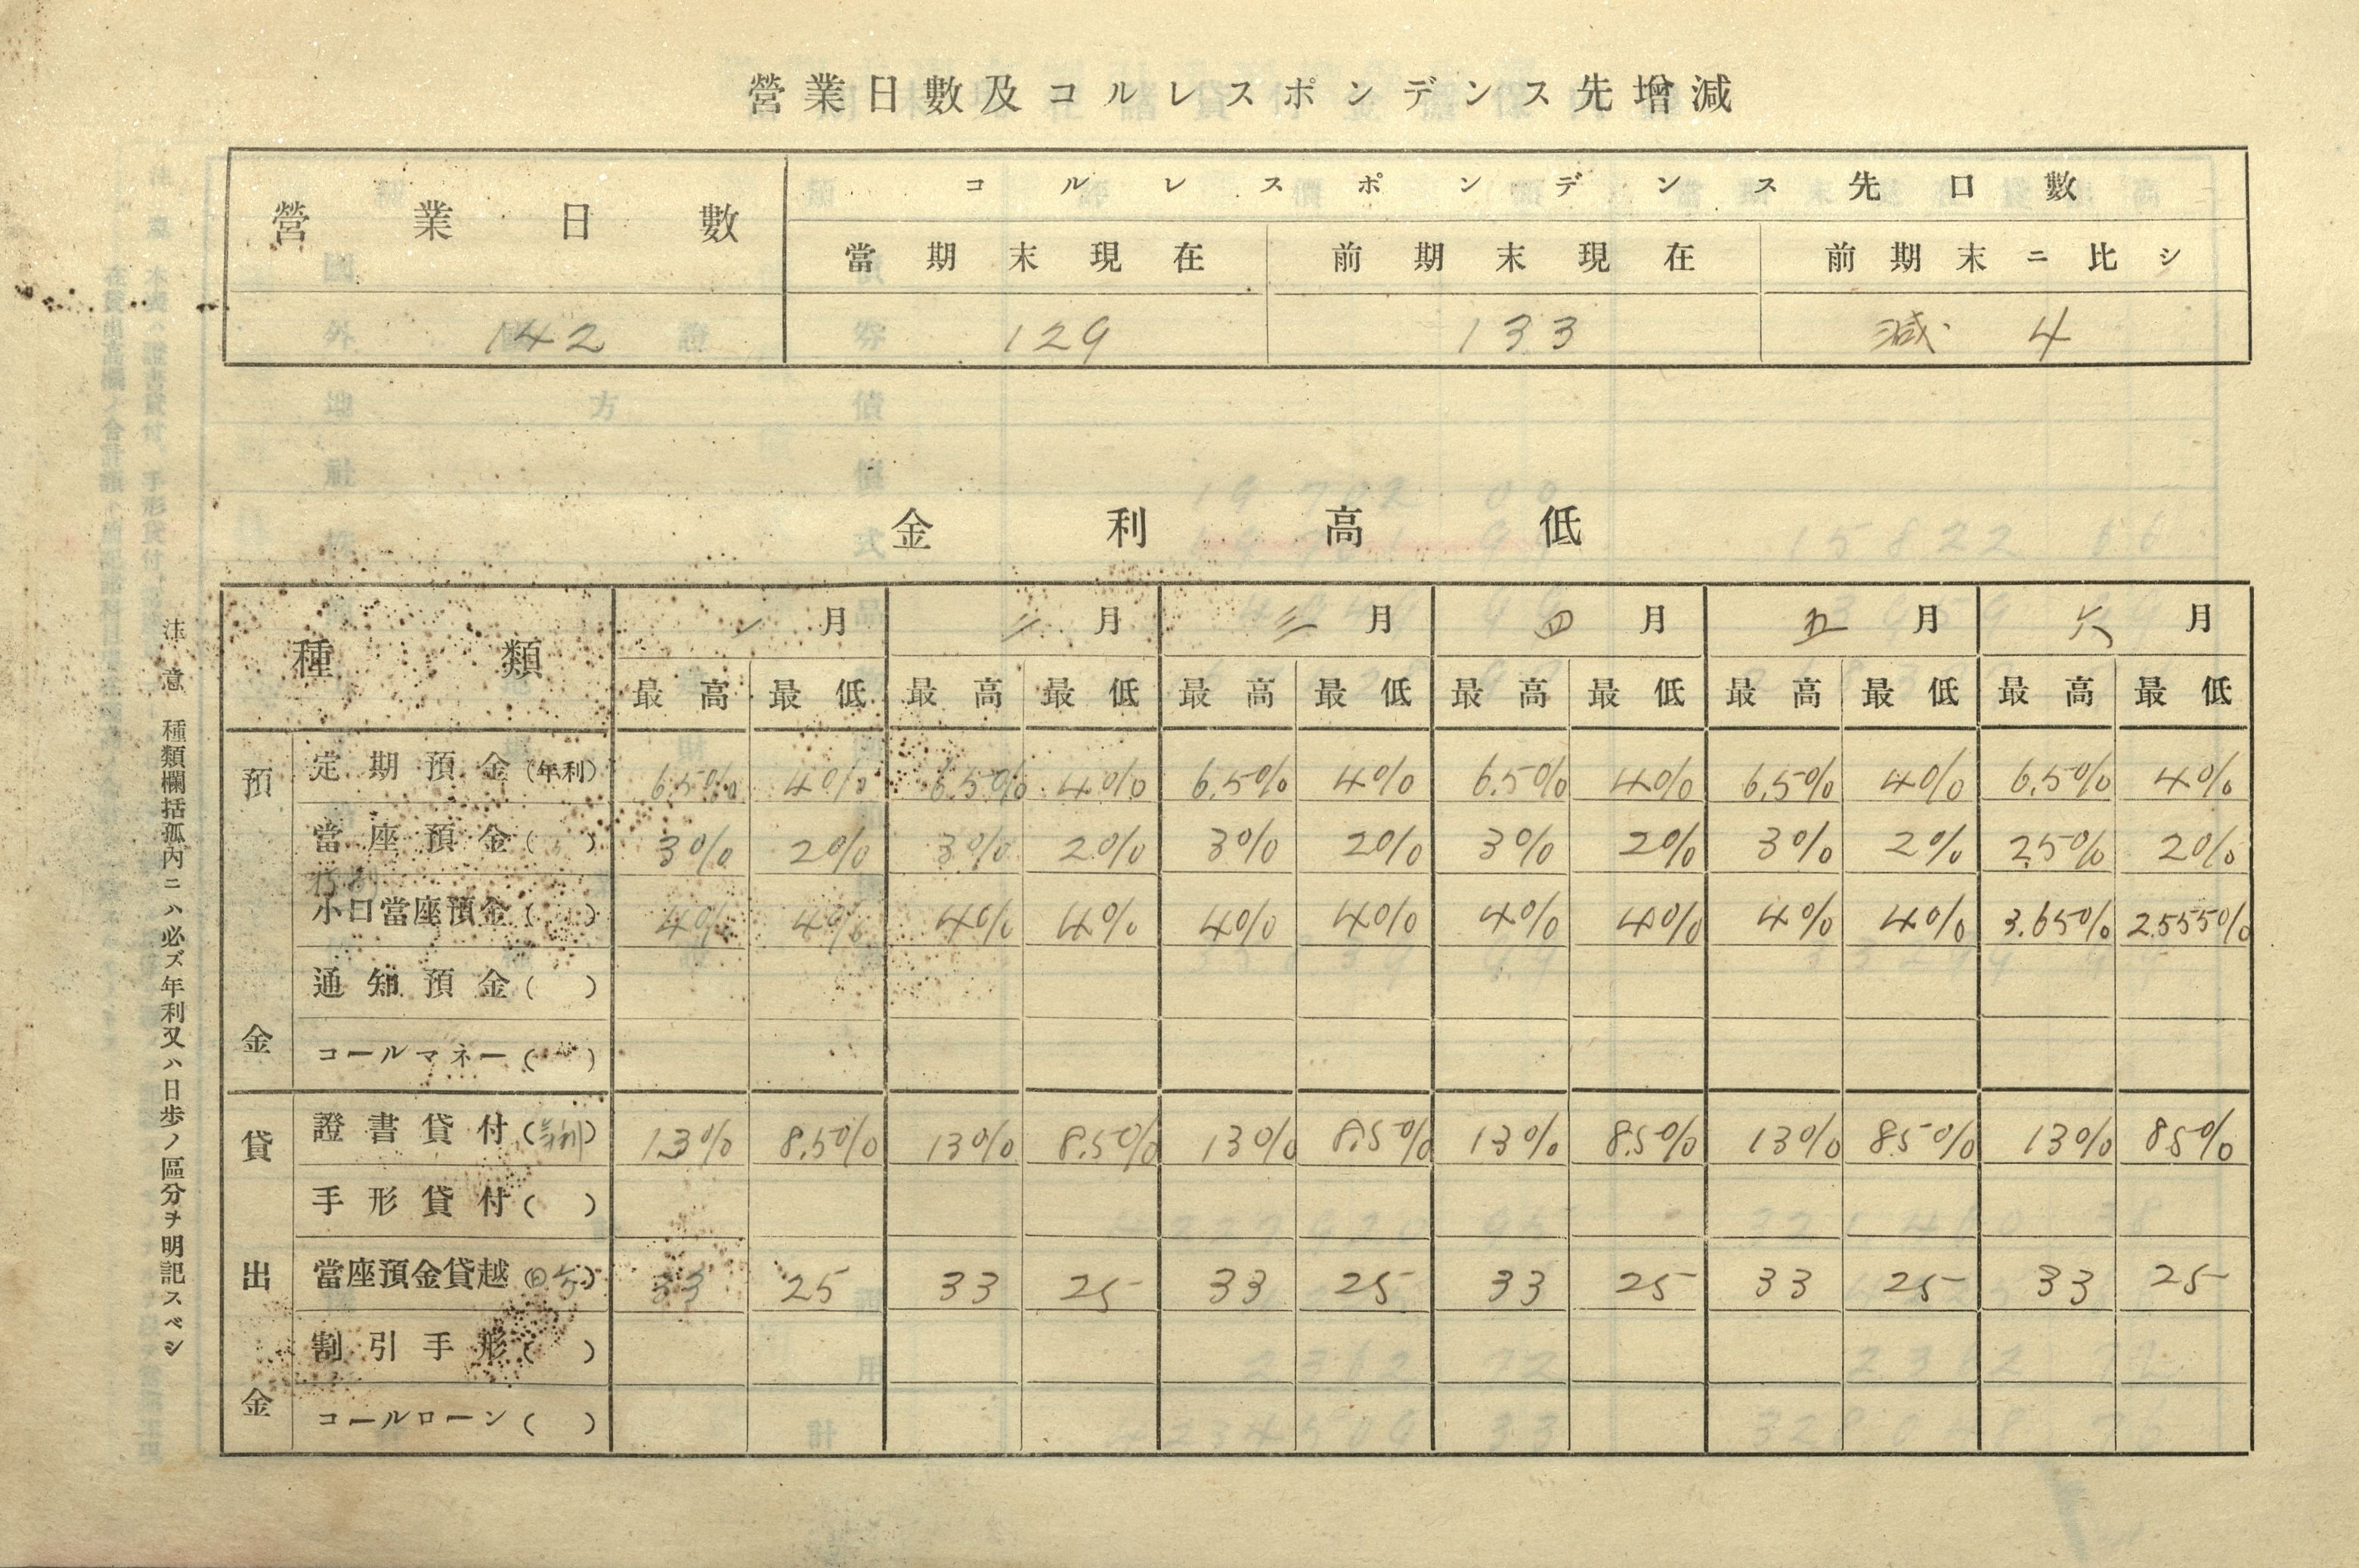 營業日數及コルレスポンデンス先增減
營業日數 コルレスポンデンス先口數
當期末現在 前期末現在 前期末ニ比シ
142 129 133 減 4
金利高低
種類 一月 二月 三月 四月 五月 六月
最高 最低 最高 最低 最高 最低 最高 最低 最高 最低 最高 最低
預金
定期預金(年利) 6.5% 4% 6.5% 4% 6.5% 4% 6.5% 4% 6.5% 4% 6.5% 4%
當座預金( ) 3% 2% 3% 2% 3% 2% 3% 2% 3% 2% 2.5% 2%
特別
小口當座預金( ) 4% 4% 4% 4% 4% 4% 4% 4% 4% 4% 3.65% 2.555%
通知預金( )
コールマネー( )
貸出金
證書貸付(年利) 13% 8.5% 13% 8.5% 13% 8.5% 13% 8.5% 13% 8.5% 13% 8.5%
手形貸付( )
當座預金貸越(日歩) 33 25 33 25 33 25 33 25 33 25 33 25
割引手形( )
コールローン( )
注意 種類欄括孤內ニハ必ズ年利又ハ日步ノ區分ヲ明記スベシ